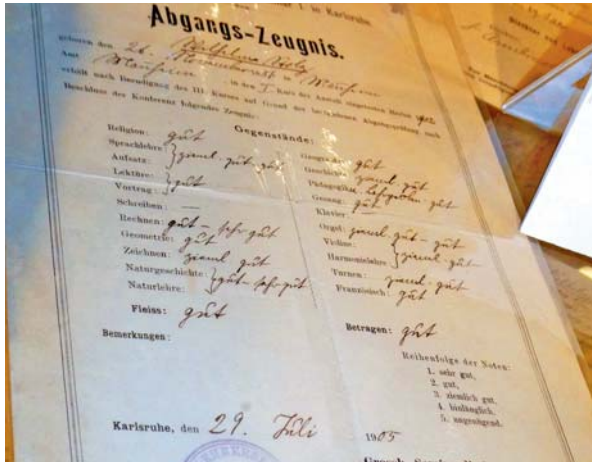 I. in Karlsruhe.
Abgangs-Zeugnis.
geboren den 26. November in
Amt Mannheim in den I. Kurs der Anstalt eingetreten Herbst 1902
erhält nach Beendigung des III. Kurses auf Grund der bestandenen Abgangsprüfung nach
Beschluss der Konferenz folgendes Zeugnis:
Gegenstände:
Religion: gut
Sprachlehre:
Aufsatz: } zieml. gut - gut
Lektüre:
Vortrag: } gut
Schreiben: —
Rechnen: gut - sehr gut
Geometrie: gut
Zeichnen: zieml. gut
Naturgeschichte:
Naturlehre: } gut - sehr gut
Fleiss: gut
Bemerkungen:
gut
Geschichte: zieml. gut
Pädagogik: gut
Gesang: gut
Klavier: —
Orgel: zieml. gut - gut
Violine:
Harmonielehre: } zieml. gut
Turnen: zieml. gut
Französisch: gut
Betragen: gut
Reihenfolge der Noten:
1. sehr gut,
2. gut,
3. ziemlich gut,
4. hinlänglich,
5. ungenügend.
Karlsruhe, den 29. Juli 1905